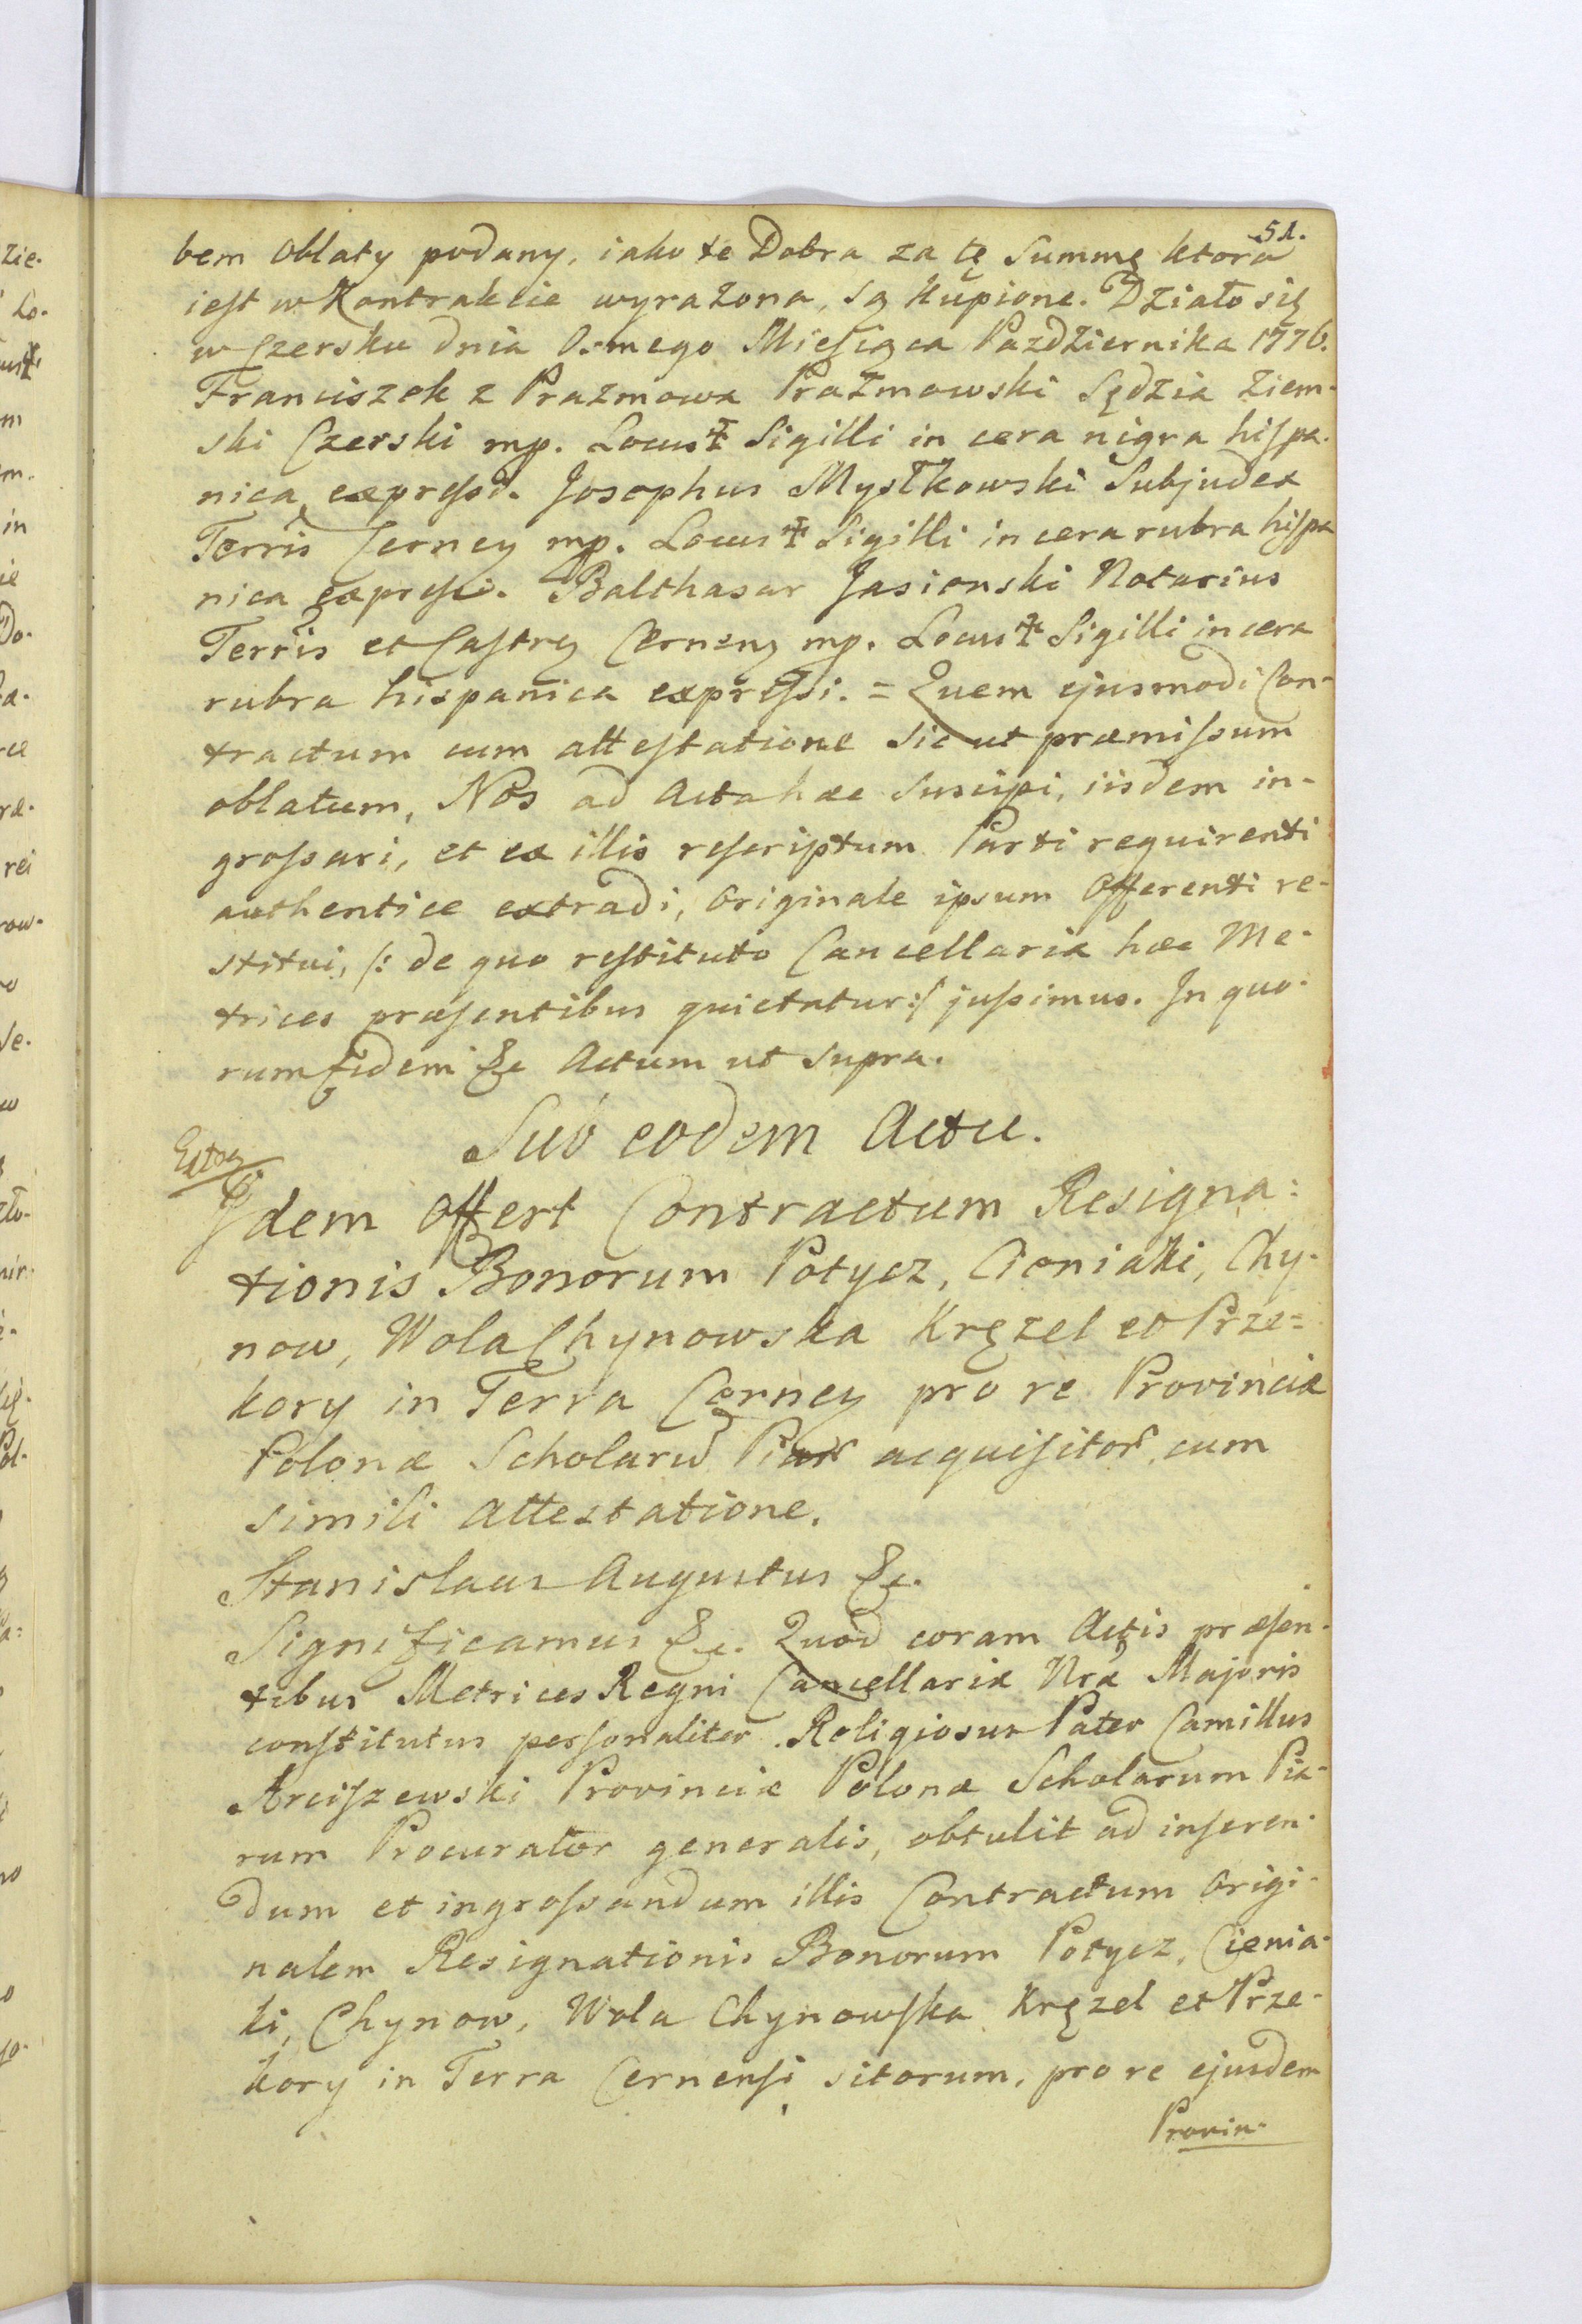 51.
bem Oblaty podany, iako te Dobra za tę Summę ktora
iest w Kontrakcie wyrażona, są kupione. Działo się
w Czersku dnia Osmego Miesiąca Pazdziernika 1776.
Franciszek z Prażmowa Prażmowski Sędzia Ziem-
ski Czerski mp. Locus ‡ Sigilli in cera nigra hispa-
nica expressi. Josephus Mystkowski Subjudex
Terris Cerney mp. Locus ‡ Sigilli in cera rubra hispa
nica expressi. Balthasar Jasionski Notarius
Terris et Castrey Cerneny mp. Locus ‡ Sigilli in cera
rubra hispanica expressi. = Quem ejusmodi Con-
tractum cum attestatione sic ut præmissum
oblatum, Nos ad Acta hæc suscipi, iisdem in-
grossari, et ex illis rescriptum Parti requirenti
authentice extradi, Originale ipsum Offerenti re-
stitui, /: de quo restituto Cancellaria hæc Me-
trices præsentibus quietatur :/ jussimus. In quo-
rum fidem &c Actum ut supra.
Sub eodem Actu.
Idem offert Contractum Resigna:
tionis Bonorum Potycz, Cieniaki, Chy-
now, Wola Chynowska Kręzel et Prze=
kory in Terra Cerney pro re Provinciæ
Polonæ Scholarū Piar acquisitor, cum
simili Attestatione.
Stanislaus Augustus &c.
Significamus &c. Quod coram Actis præsen-
tibus Metrices Regni Cancellariæ Nræ Majoris
constitutus personaliter Religiosus Pater Camillus
Arciszewski Provinciæ Polonæ Scholarum Pia-
rum Procurator generalis, obtulit ad inseren-
dum et ingrossandum illis Contractum Origi-
nalem Resignationis Bonorum Potycz, Cienia-
ki, Chynow, Wola Chynowska Kręzel et Prze-
kory in Terra Cernensi sitorum, pro re ejusdem
Provin-